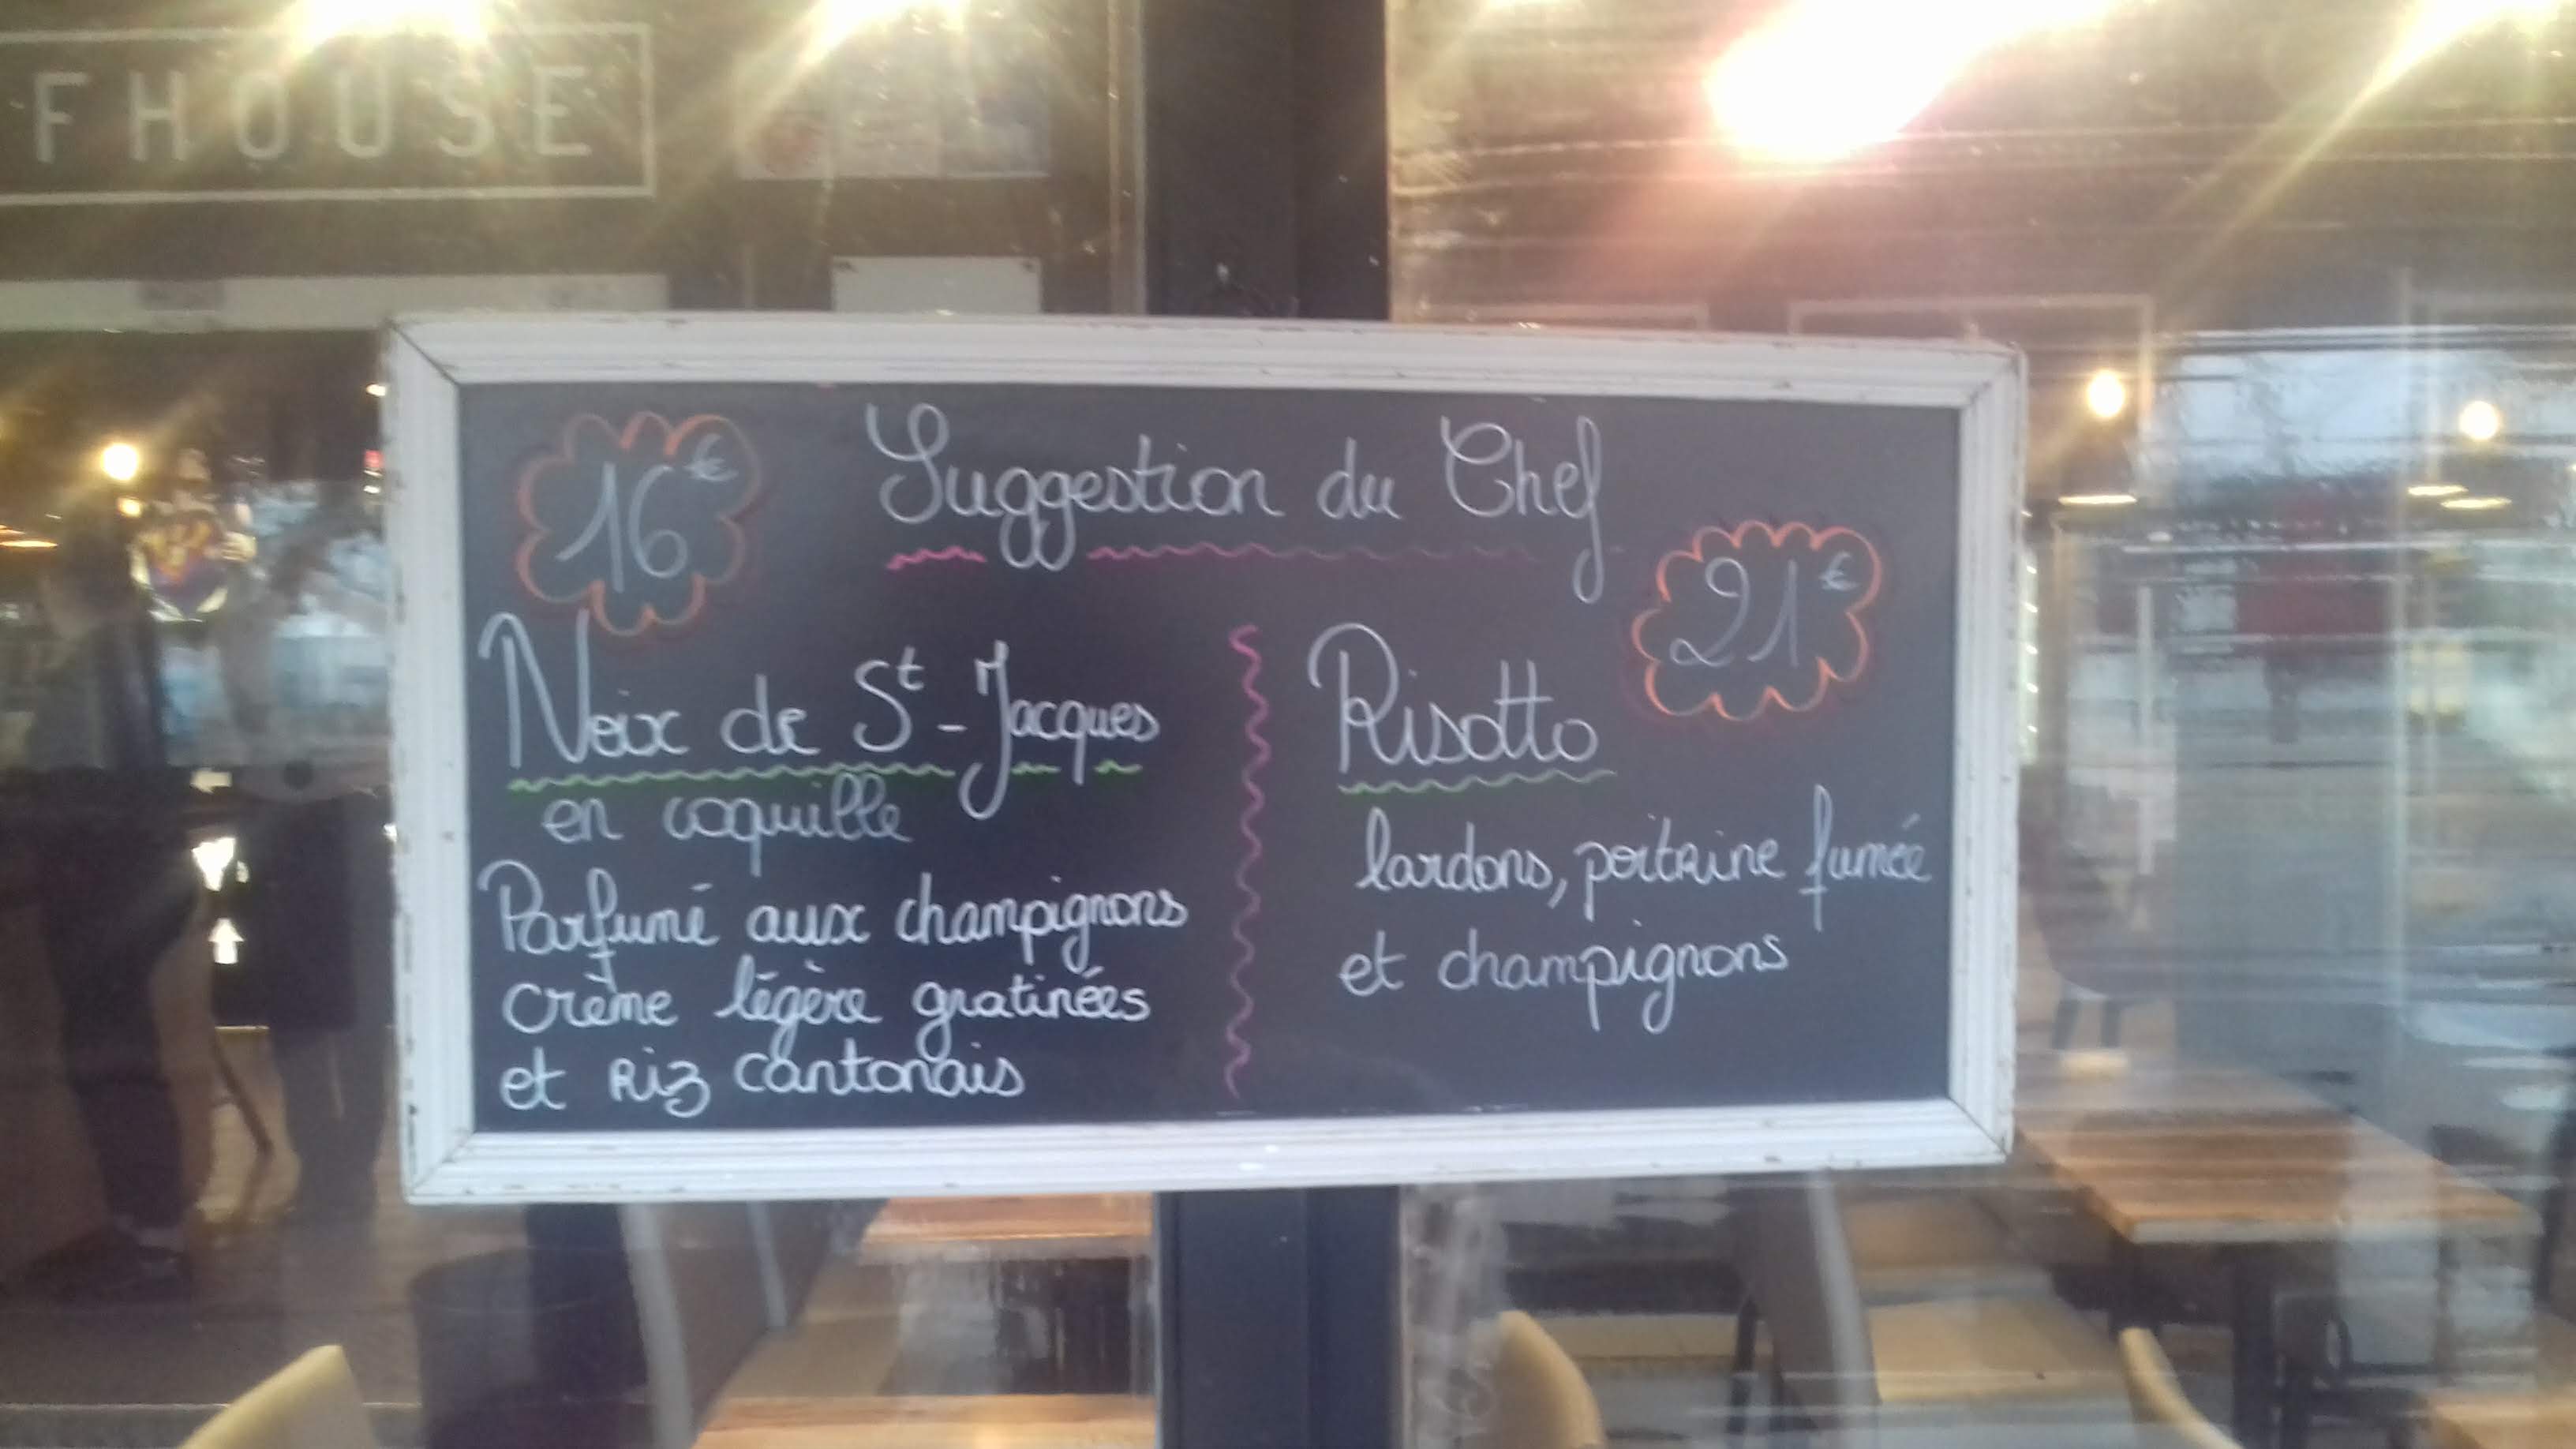 FHOUSE
16€
Suggestion du Chef
21€
Noix de St-Jacques
en coquille
Parfumé aux champignons
crème légère gratinées
et Riz cantonais
Risotto
lardons, poitrine fumée
et champignons